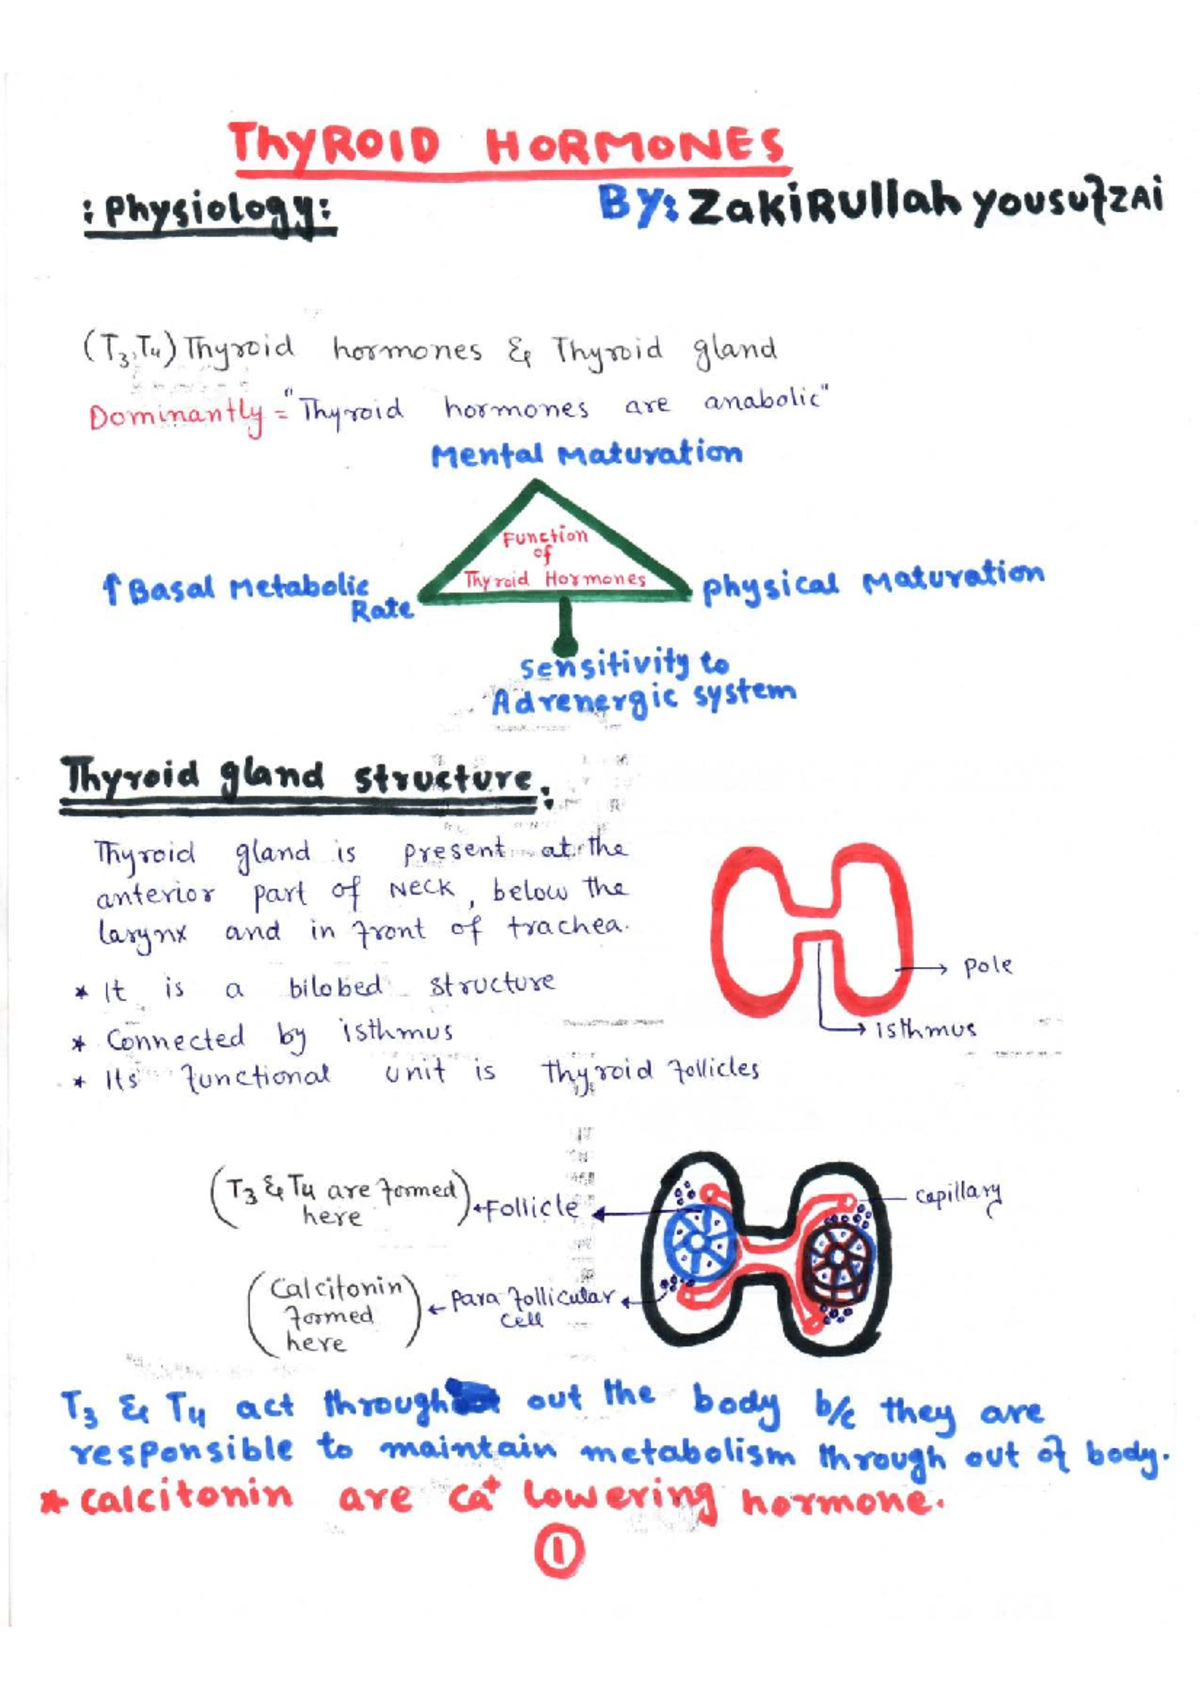 THYROID HORMONES
: Physiology:
BY: ZakiRullah YousufZAI
(T3,T4) Thyroid hormones & Thyroid gland
Dominantly = "Thyroid hormones are anabolic"
Mental Maturation
Function
of
Thyroid Hormones
↑ Basal Metabolic
Rate
Physical Maturation
Sensitivity to
Adrenergic system
Thyroid gland structure:
Thyroid gland is present at the
anterior part of NECK, below the
larynx and in front of trachea.
* It is a bilobed structure
* Connected by isthmus
* Its functional unit is thyroid follicles
pole
isthmus
(T3 & T4 are formed
here)
Follicle
capillary
(Calcitonin
formed
here)
Para follicular
cell
T3 & T4 act through out the body b/c they are
responsible to maintain metabolism through out of body.
* Calcitonin are Ca+ lowering hormone.
1